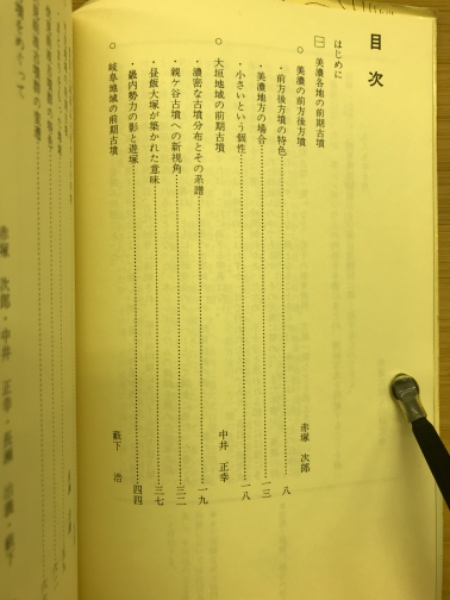 目次
はじめに
一 美濃各地の前期古墳
○ 美濃の前方後方墳 赤塚 次郎
・前方後方墳の特色 八
・美濃地方の場合 一三
・小さいという個性 一八
○ 大垣地域の前期古墳 中井 正幸
・濃密な古墳分布とその系譜 一九
・親ヶ谷古墳への新視角 三二
・昼飯大塚が築かれた意味 三七
・畿内勢力の影と遊塚 四四
○ 岐阜地域の前期古墳 藪下 浩
をめぐって
赤塚 次郎・中井 正幸・